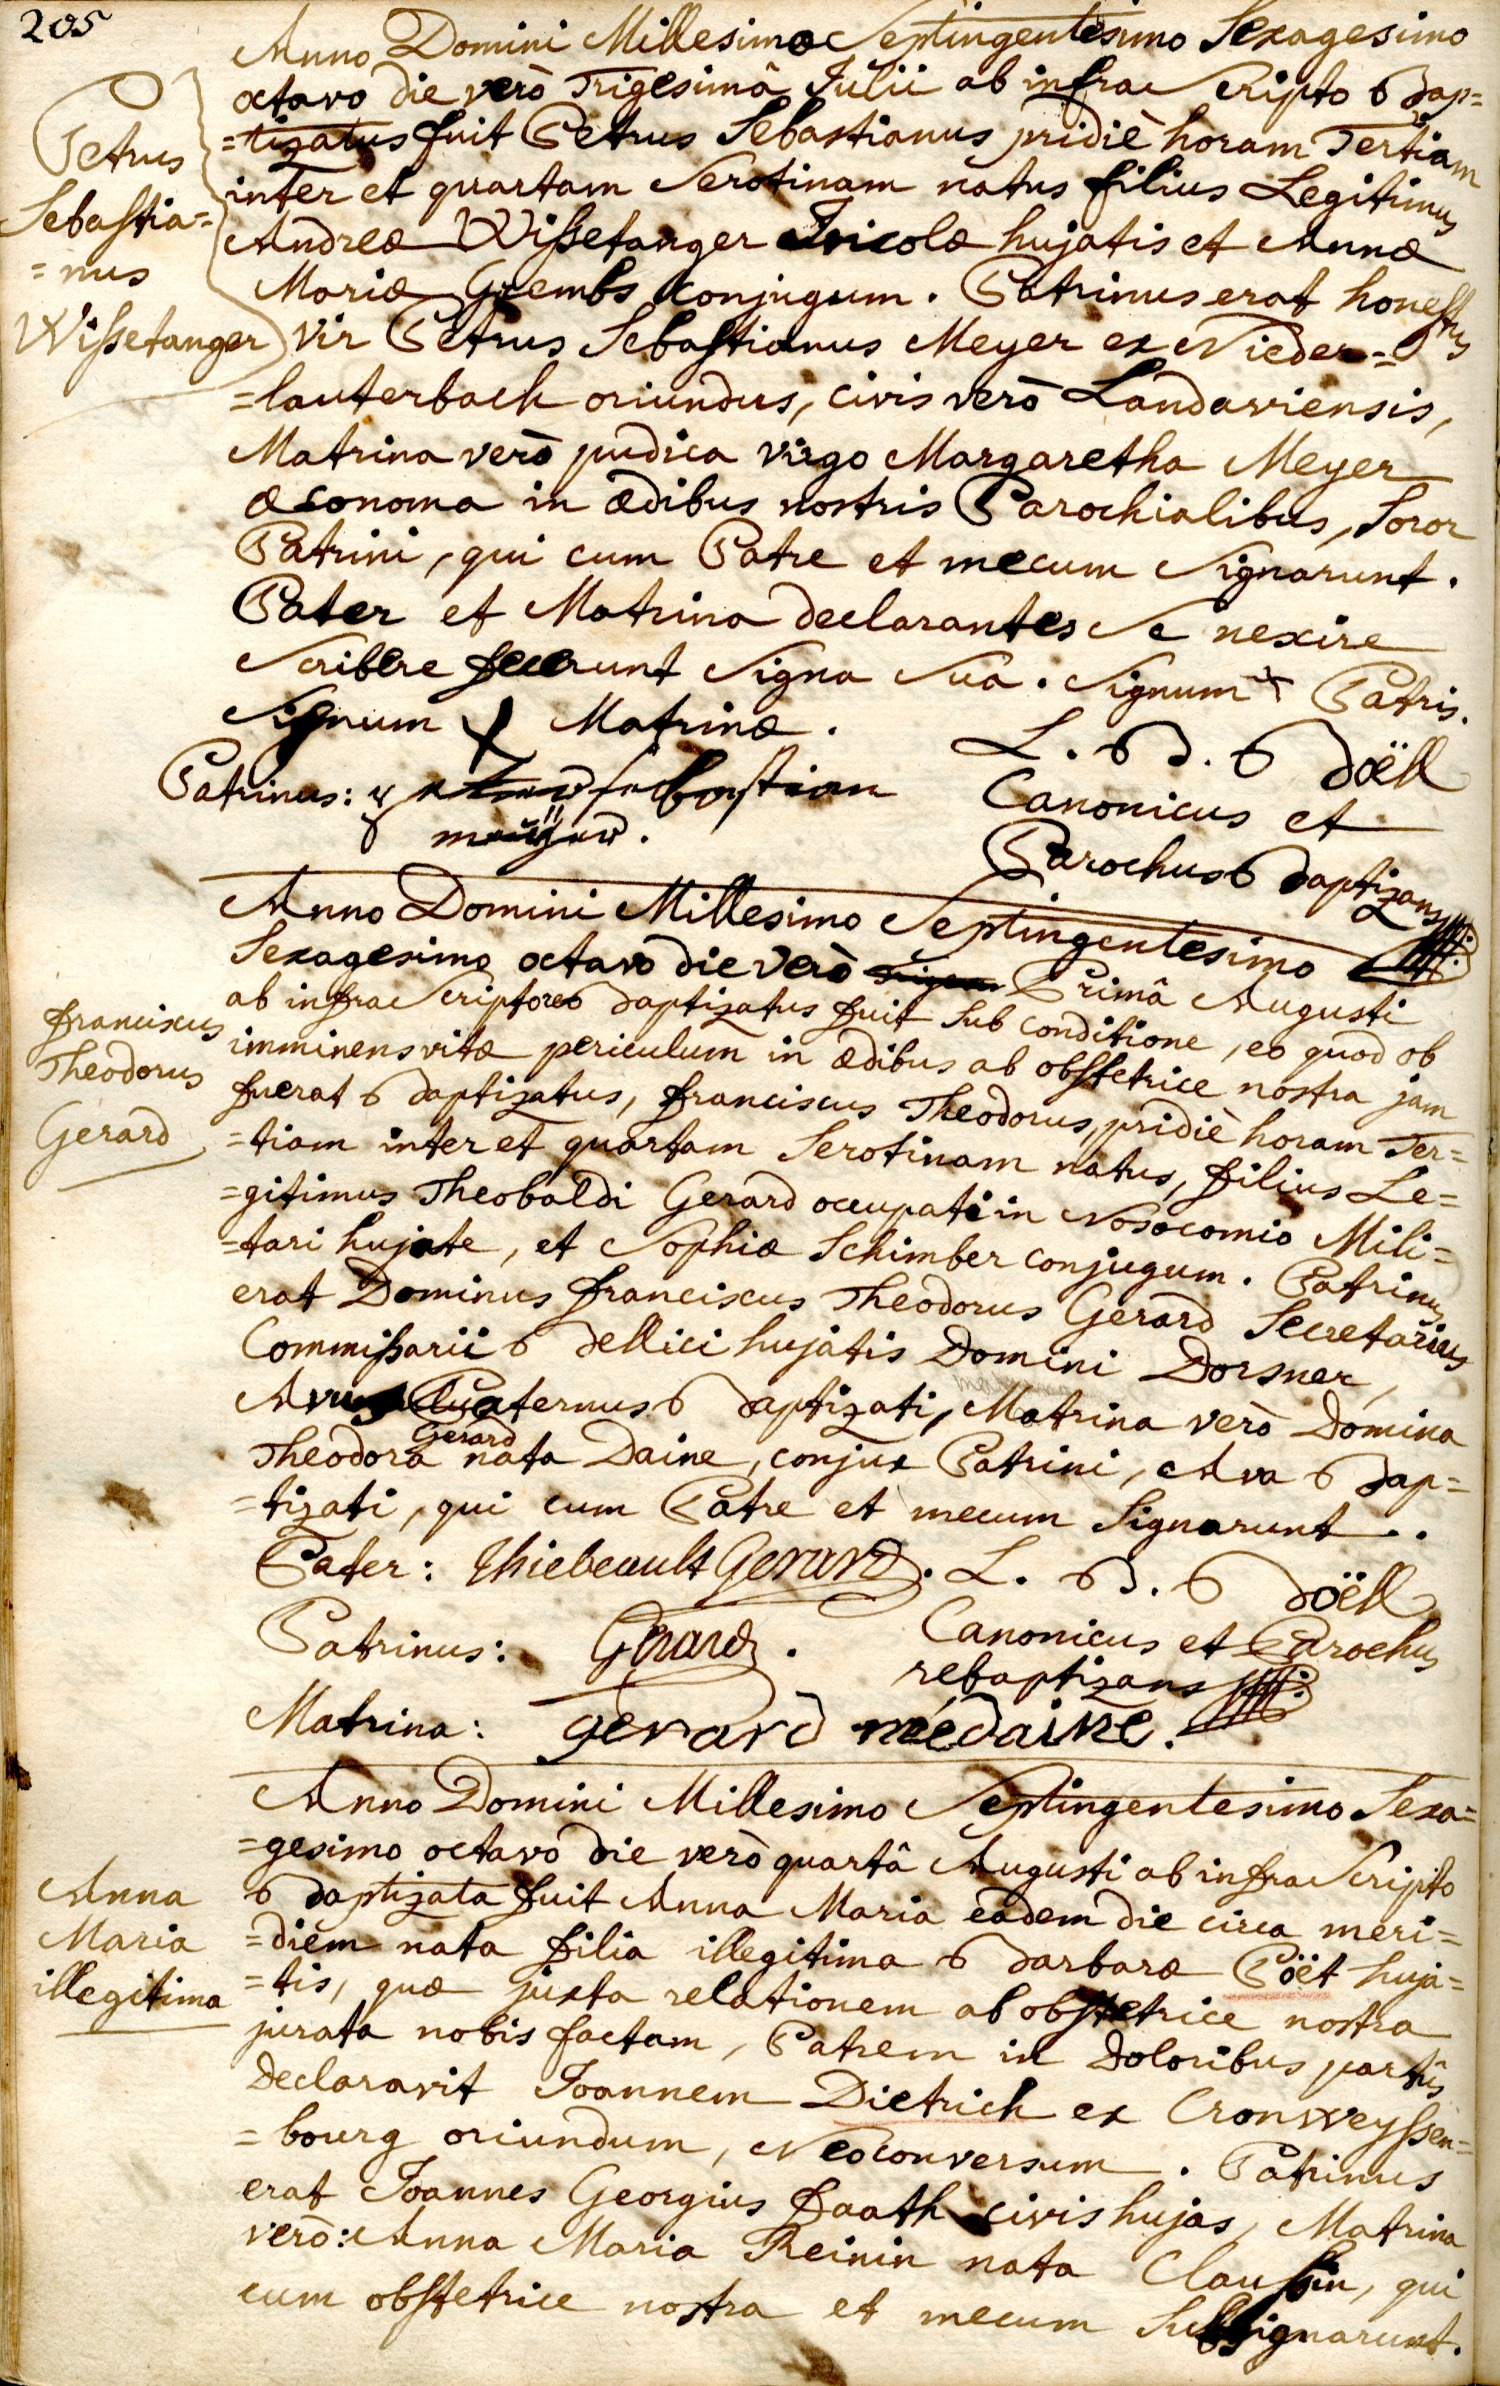 205
Anno Domini Millesimo Septingentesimo Sexagesimo
octavo die verò Trigesimâ Julii ab infra Scripto Bap=
=tizatus fuit Petrus Sebastianus pridiè horam Tertiam
inter et quartam Serotinam natus filius Legitimus
Andreæ Wissetanger Incolæ hujatis et Annæ
Mariæ Grembs conjugum. Patrinus erat honestus
vir Petrus Sebastianus Meyer ex Nieder=
=lauterbach oriundus, civis verò Landaviensis,
Matrina verò pudica virgo Margaretha Meyer
œconoma in ædibus nostris Parochialibus, Soror
Patrini, qui cum Patre et mecum Signarunt.
Pater et Matrina declarantes Se nescire
Scribere fecerunt Signa Sua. Signum + Patris.
Signum + Matrinæ.
Petrus
Sebastia=
=nus
Wissetanger
L. B. Boëll
Canonicus et
Parochus Baptizans
Patrinus: sebastian
Anno Domini Millesimo Septingentesimo
Sexagesimo octavo die verò Primâ Augusti
ab infra Scripto Baptizatus fuit Sub conditione, eo quod ob
imminens vitæ periculum in ædibus ab obstetrice nostra jam
fuerat Baptizatus, Franciscus Theodorus, pridiè horam Ter=
=tiam inter et quartam Serotinam natus, filius Le=
=gitimus Theobaldi Gerard occupati in Nosocomio Mili=
=tari hujate, et Sophiæ Schimber conjugum. Patrinus
erat Dominus Franciscus Theodorus Gerard Secretarius
Commissarii Bellici hujatis Domini Dorsner,
Avus Paternus Baptizati, Matrina verò Domina
Theodora Gerard nata Daine, conjux Patrini, Ava Bap=
=tizati, qui cum Patre et mecum Signarunt..
Franciscus
Theodorus
Gerard
Pater: Thiebeault Gerard.
L. B. Boëll
Canonicus et Parochus
rebaptizans
Patrinus: Gerard.
Matrina: gerard née daine.
Anno Domini Millesimo Septingentesimo Sexa=
=gesimo octavo die verò quartâ Augusti ab infra Scripto
Baptizata fuit Anna Maria eâdem die circa meri=
=diem nata filia illegitima Barbaræ Poët huja=
=tis, quæ juxta relationem ab obstetrice nostra
jurata nobis factam, Patrem in Doloribus partûs
declaravit Joannem Dietrich ex Cronweyssen=
=bourg oriundum, Neoconversum. Patrinus
erat Joannes Georgius Faath civis hujas, Matrina
verò: Anna Maria Reinin nata Claussin, qui
cum obstetrice nostra et mecum Subsignarunt.
Anna
Maria
illegitima